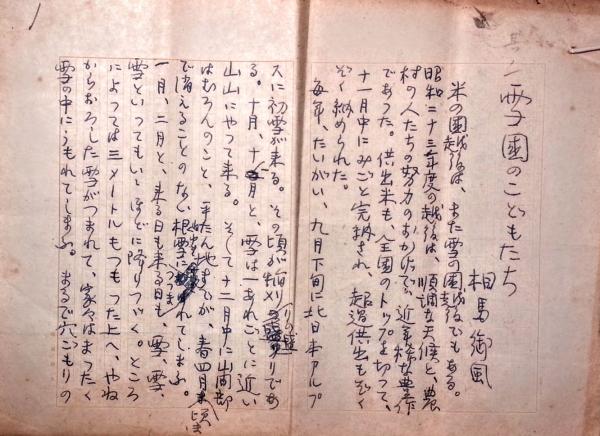 雪國のこどもたち
相馬御風
米の國越後は、また雪の國越後でもある。
昭和二十三年度の越後は、順調な天候と、農
村の人たちの努力のおかげで、近年稀な豊作
であつた。供出米も全国のトップを切つて、
十一月中にみごと完納され、超過供出もぞく
ぞく納められた。
毎年、たいがい、九月下旬に北日本アルプ
スに初雪が来る。その頃が稲刈りの盛りであ
る。十月、十一月と、雪は一あれごとに近い
山山にやつて来る。そして十二月中に山間部
はむろんのこと、平たん地までが、春四月頃
まで消えることのない根雪に
一月、二月と、来る日も来る日も、雪、雪、
雪といつてもいいほどに降りつづく。ところ
によつては三メートルもつもつた上へ、やね
からおろした雪がつまれて、家々はまつたく
雪の中にうもれてしまふ。まるで穴ごもりの